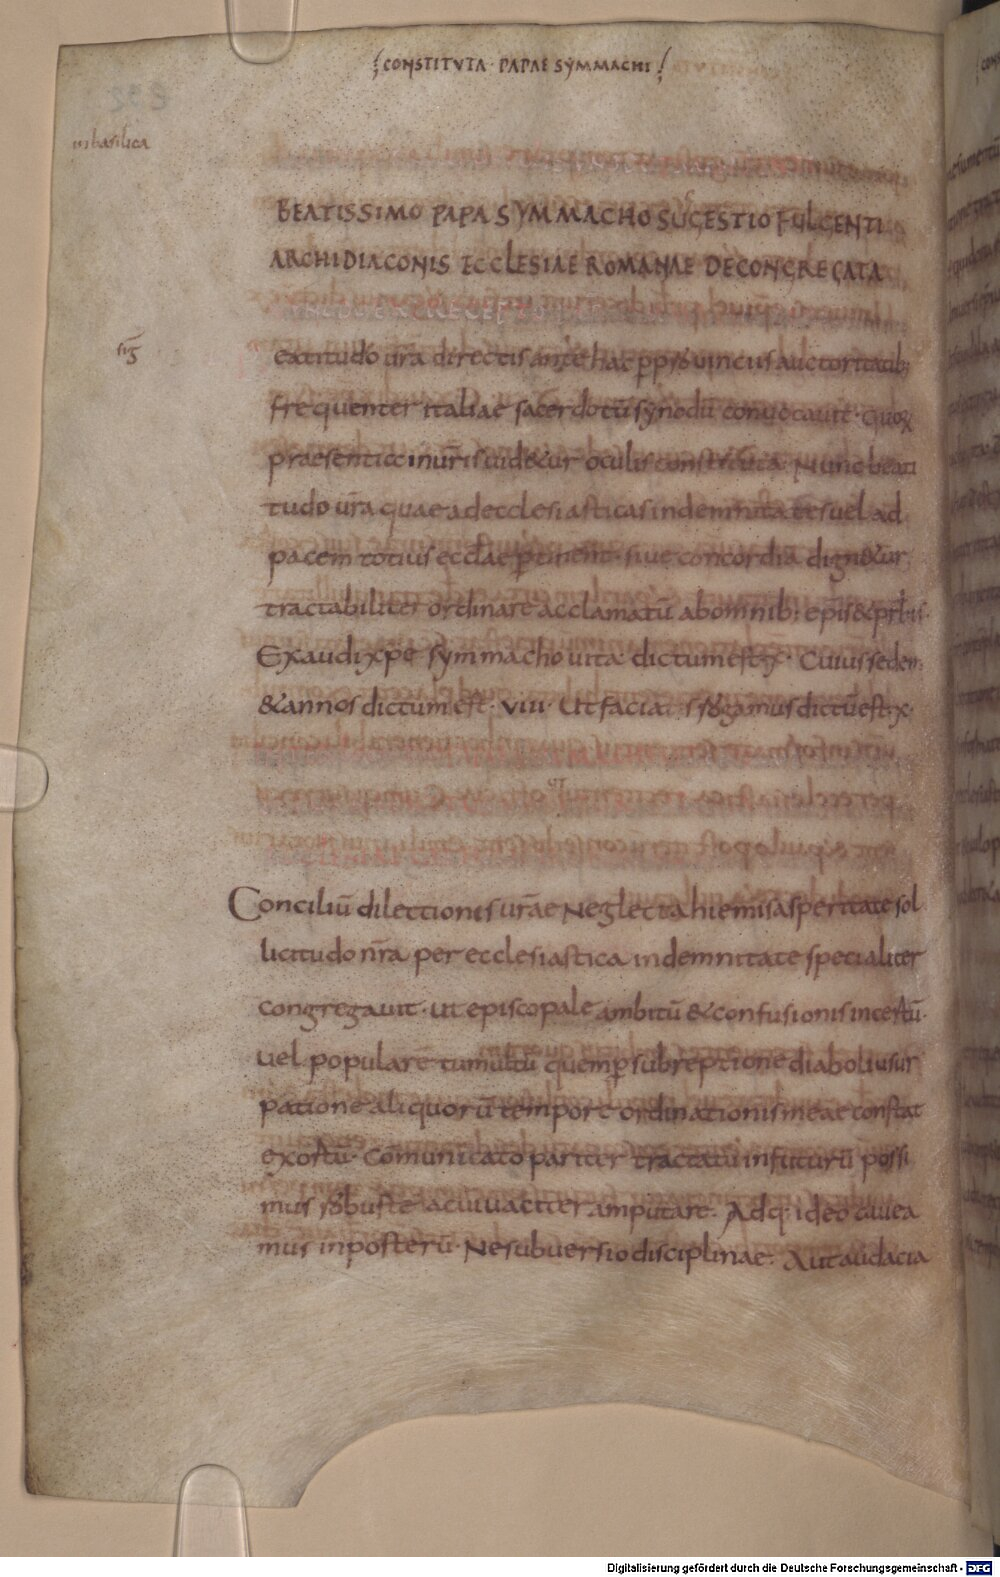 CONSTITVTA · PAPAE SYMMACHI
in basilica
BEATISSIMO PAPA SYMMACHO SUGESTIO FULGENTI
ARCHIDIACONIS ECCLESIAE ROMANAE DECONGREGATA
SYNODO EX PRECEPTO
eatitudo ur̄a directis ante hac p̱ p̱rouincias auctoritatib;
frequenter italiae sacerdotū synodū conuocauit · Quoꝝ
praesentia in ur̄is uid&ur oculis constituta. Nunc beati
tudo ur̄a quae ad ecclesiasticas indemnitates uel ad
pacem totius eccl̄ae p̱tinent · siue concordia dign&ur
tractabiliter ordinare acclamatū ab omnib; epis & prb̄is ·
Exaudi xp̄e symmacho uita dictum est · x · Cuius sedem
& annos dictum est · VIII · Ut facias rogamus dictū est · x ·
Conciliū dilectionis ur̄ae neglecta hiemis asperitate sol
licitudo nr̄a per ecclesiastica indemnitate specialiter
congregauit · ut episcopale ambitū & confusionis incertū ·
uel populare tumultū quem p̱ subreptione diaboli usur
patione aliquorū tempore ordinationis meae constat
exortū · Comunicato pariter tractatu in futurū possi
mus robuste ac uiuaciter amputare · Adq; ideo cauea
mus in posterū · Ne subuersio disciplinae · Aut audacia
Digitalisierung gefördert durch die Deutsche Forschungsgemeinschaft - DFG